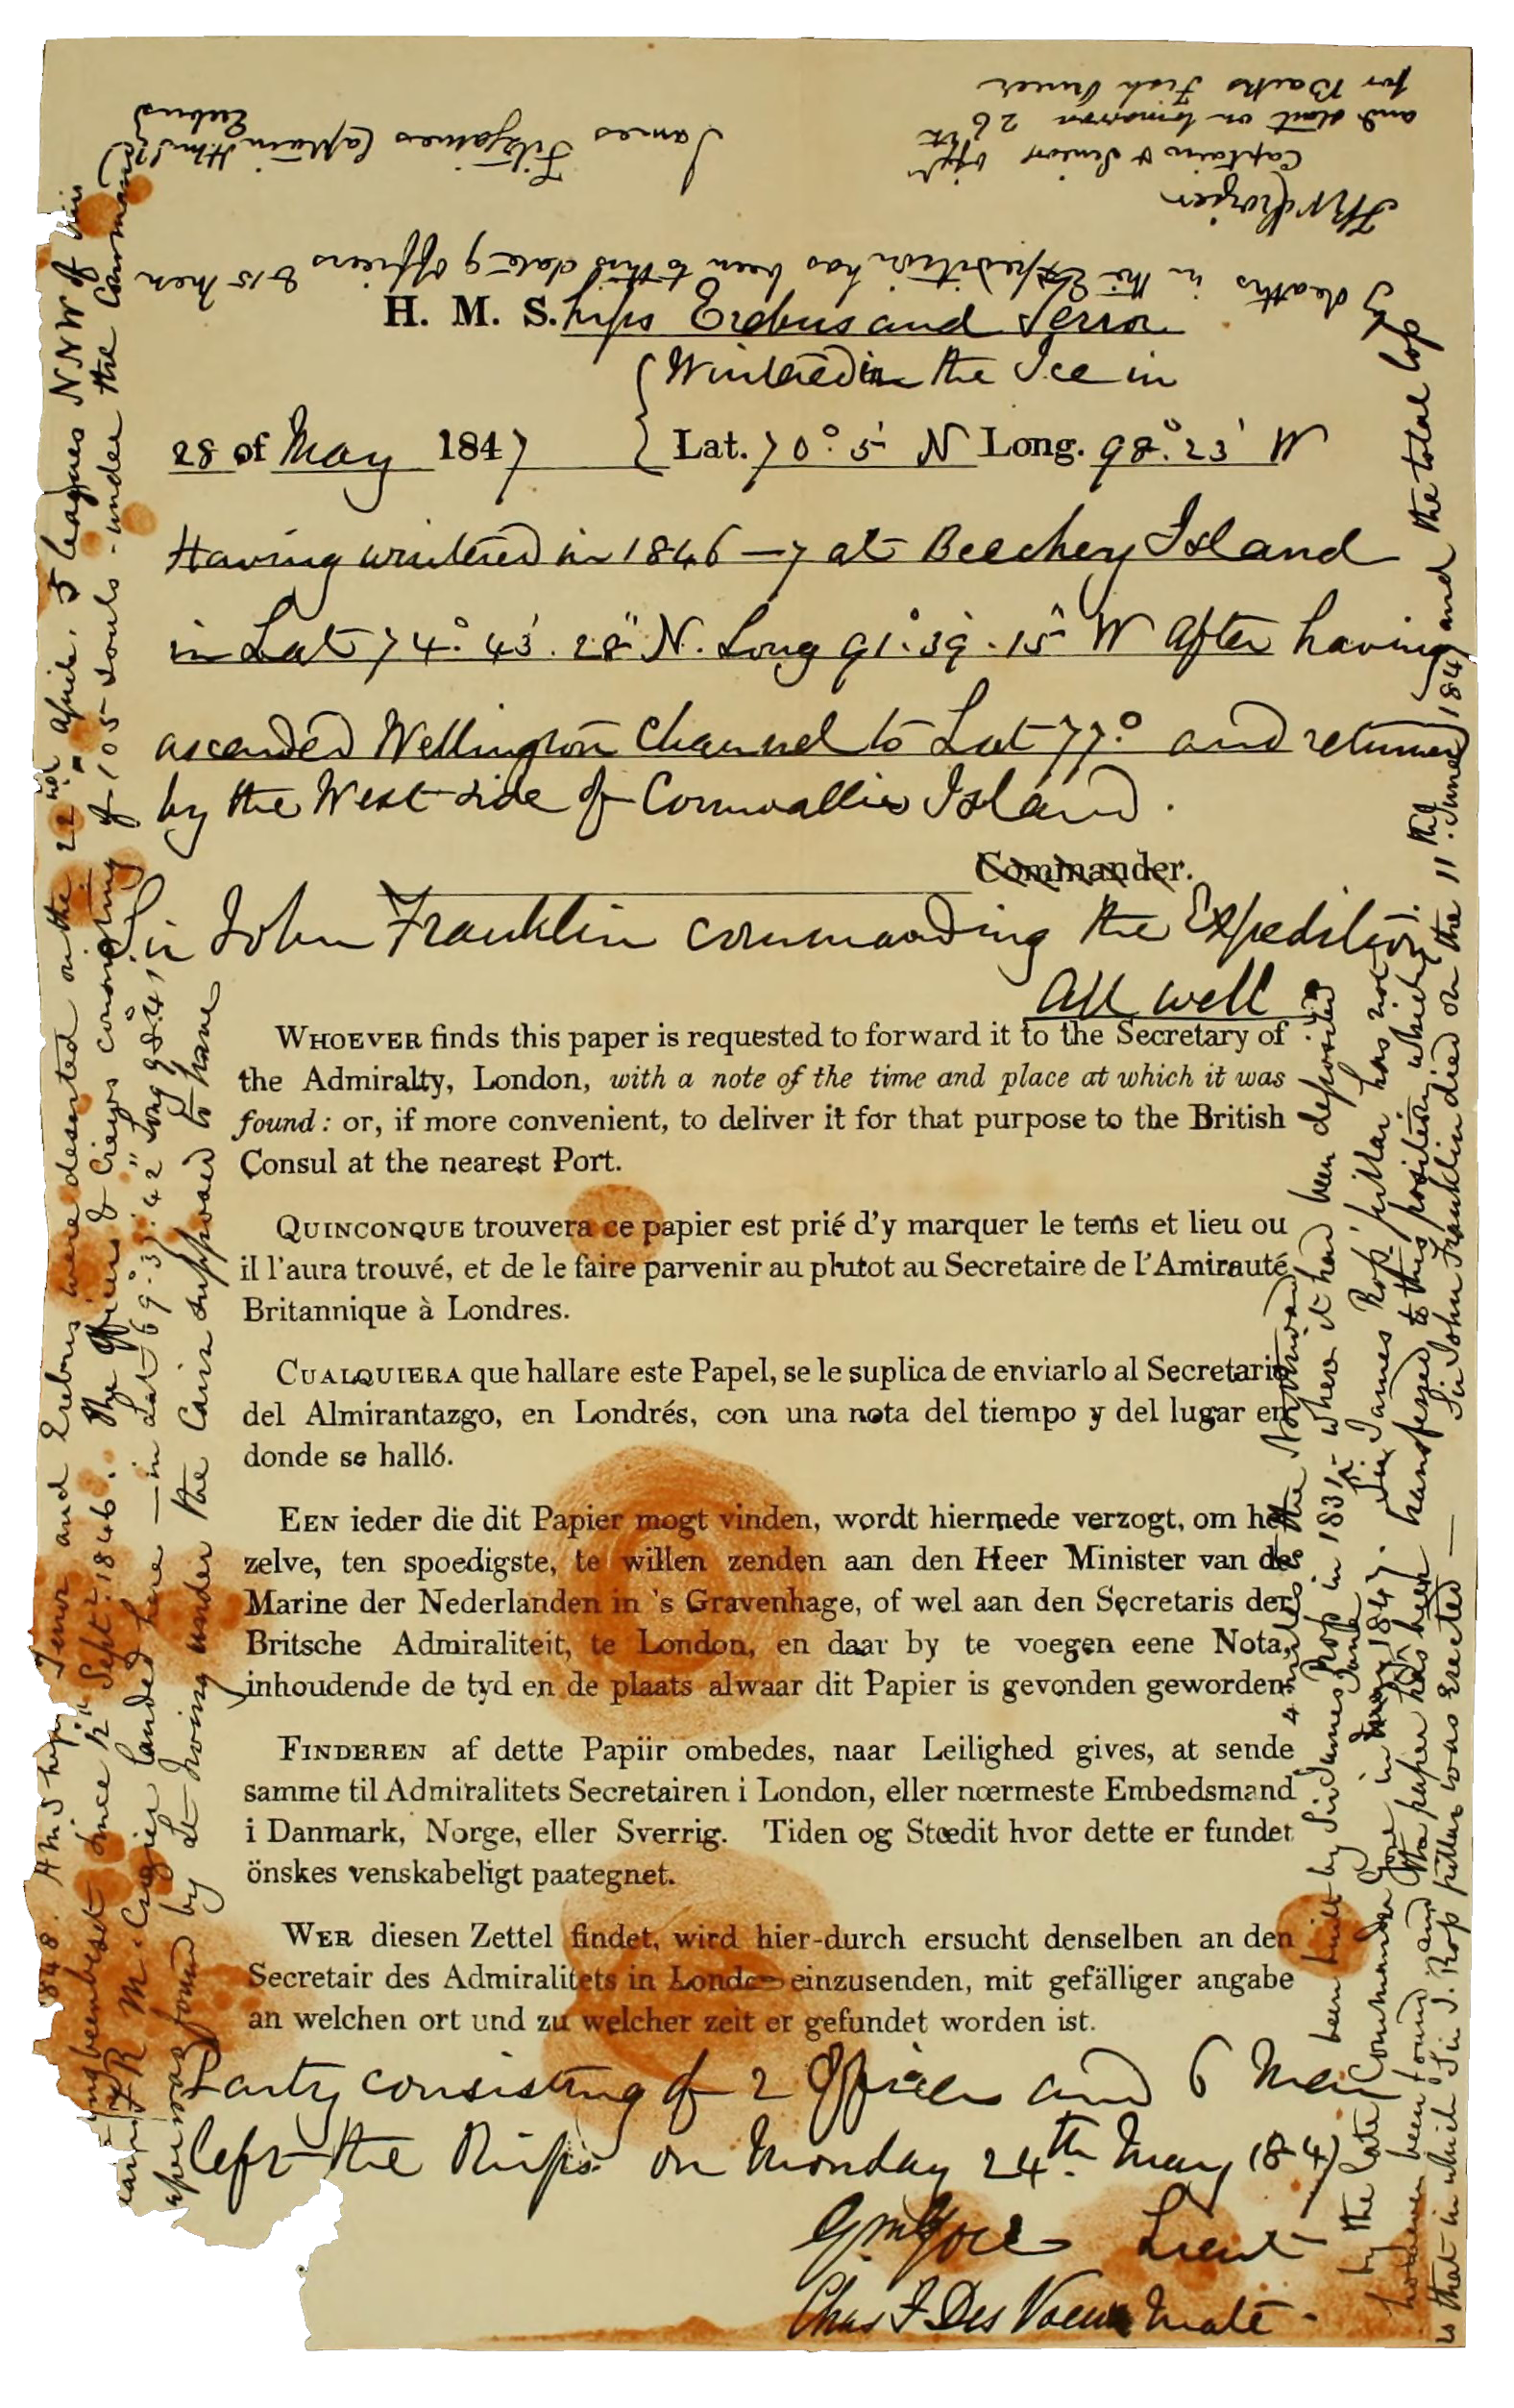 H. M. S.hips Erebus and Terror
Wintered in the Ice in
28 of May 1847 Lat. 70°. 5' N Long. 98°. 23' W
Having wintered in 1846–7 at Beechey Island
in Lat 74°. 43'. 28" N. Long 91°. 39'. 15" W After having
ascended Wellington Channel to Lat 77° and returned
by the West side of Cornwallis Island.
Commander.
Sir John Franklin commanding the Expedition.
All well
WHOEVER finds this paper is requested to forward it to the Secretary of
the Admiralty, London, with a note of the time and place at which it was
found: or, if more convenient, to deliver it for that purpose to the British
Consul at the nearest Port.
QUINCONQUE trouvera ce papier est prié d'y marquer le tems et lieu ou
il l'aura trouvé, et de le faire parvenir au plutot au Secretaire de l'Amirauté
Britannique à Londres.
CUALQUIERA que hallare este Papel, se le suplica de enviarlo al Secretario
del Almirantazgo, en Londrés, con una nota del tiempo y del lugar en
donde se halló.
EEN ieder die dit Papier mogt vinden, wordt hiermede verzogt, om het
zelve, ten spoedigste, te willen zenden aan den Heer Minister van des
Marine der Nederlanden in 's Gravenhage, of wel aan den Secretaris der
Britsche Admiraliteit, te London, en daar by te voegen eene Nota,
inhoudende de tyd en de plaats alwaar dit Papier is gevonden geworden
FINDEREN af dette Papiir ombedes, naar Leilighed gives, at sende
samme til Admiralitets Secretairen i London, eller nœrmeste Embedsmand
i Danmark, Norge, eller Sverrig. Tiden og Stœdit hvor dette er fundet
önskes venskabeligt paategnet.
WER diesen Zettel findet, wird hier-durch ersucht denselben an den
Secretair des Admiralitets in London einzusenden, mit gefälliger angabe
an welchen ort und zu welcher zeit er gefundet worden ist.
Party consisting of 2 Officers and 6 Men
left the Ships on Monday 24th. May 1847
Gm Gore Lieut
Chas F Des Voeux Mate.
848. HMShips Terror and Erebus were deserted on the 22nd April. 5 leagues NNW of this
ing been beset since 12th Septr. 1846. The Officers & Crews consisting of 105 souls under the Command
F R M. Crozier landed here — in Lat 69°. 37'. 42" Long 98°. 41'
aper was found by Lt Irving under the Cairn supposed to have
been built by Sir James Ross in 1831 - where it had been deposited
4 miles to the Northward
by the late Commander Gore in May June 1847. Sir James Ross' pillar has not
however been found and the paper has been transferred to this position which
is that in which Sir J. Ross pillar was erected — Sir John Franklin died on the 11th. June 1847 and the total loss
by deaths in the Expedition has been to this date 9 officers & 15 men
FRM Crozier
Captain & Senior Offr
and start on tomorrow 26th
for Backs Fish River
James Fitzjames Captain HMS
Erebus